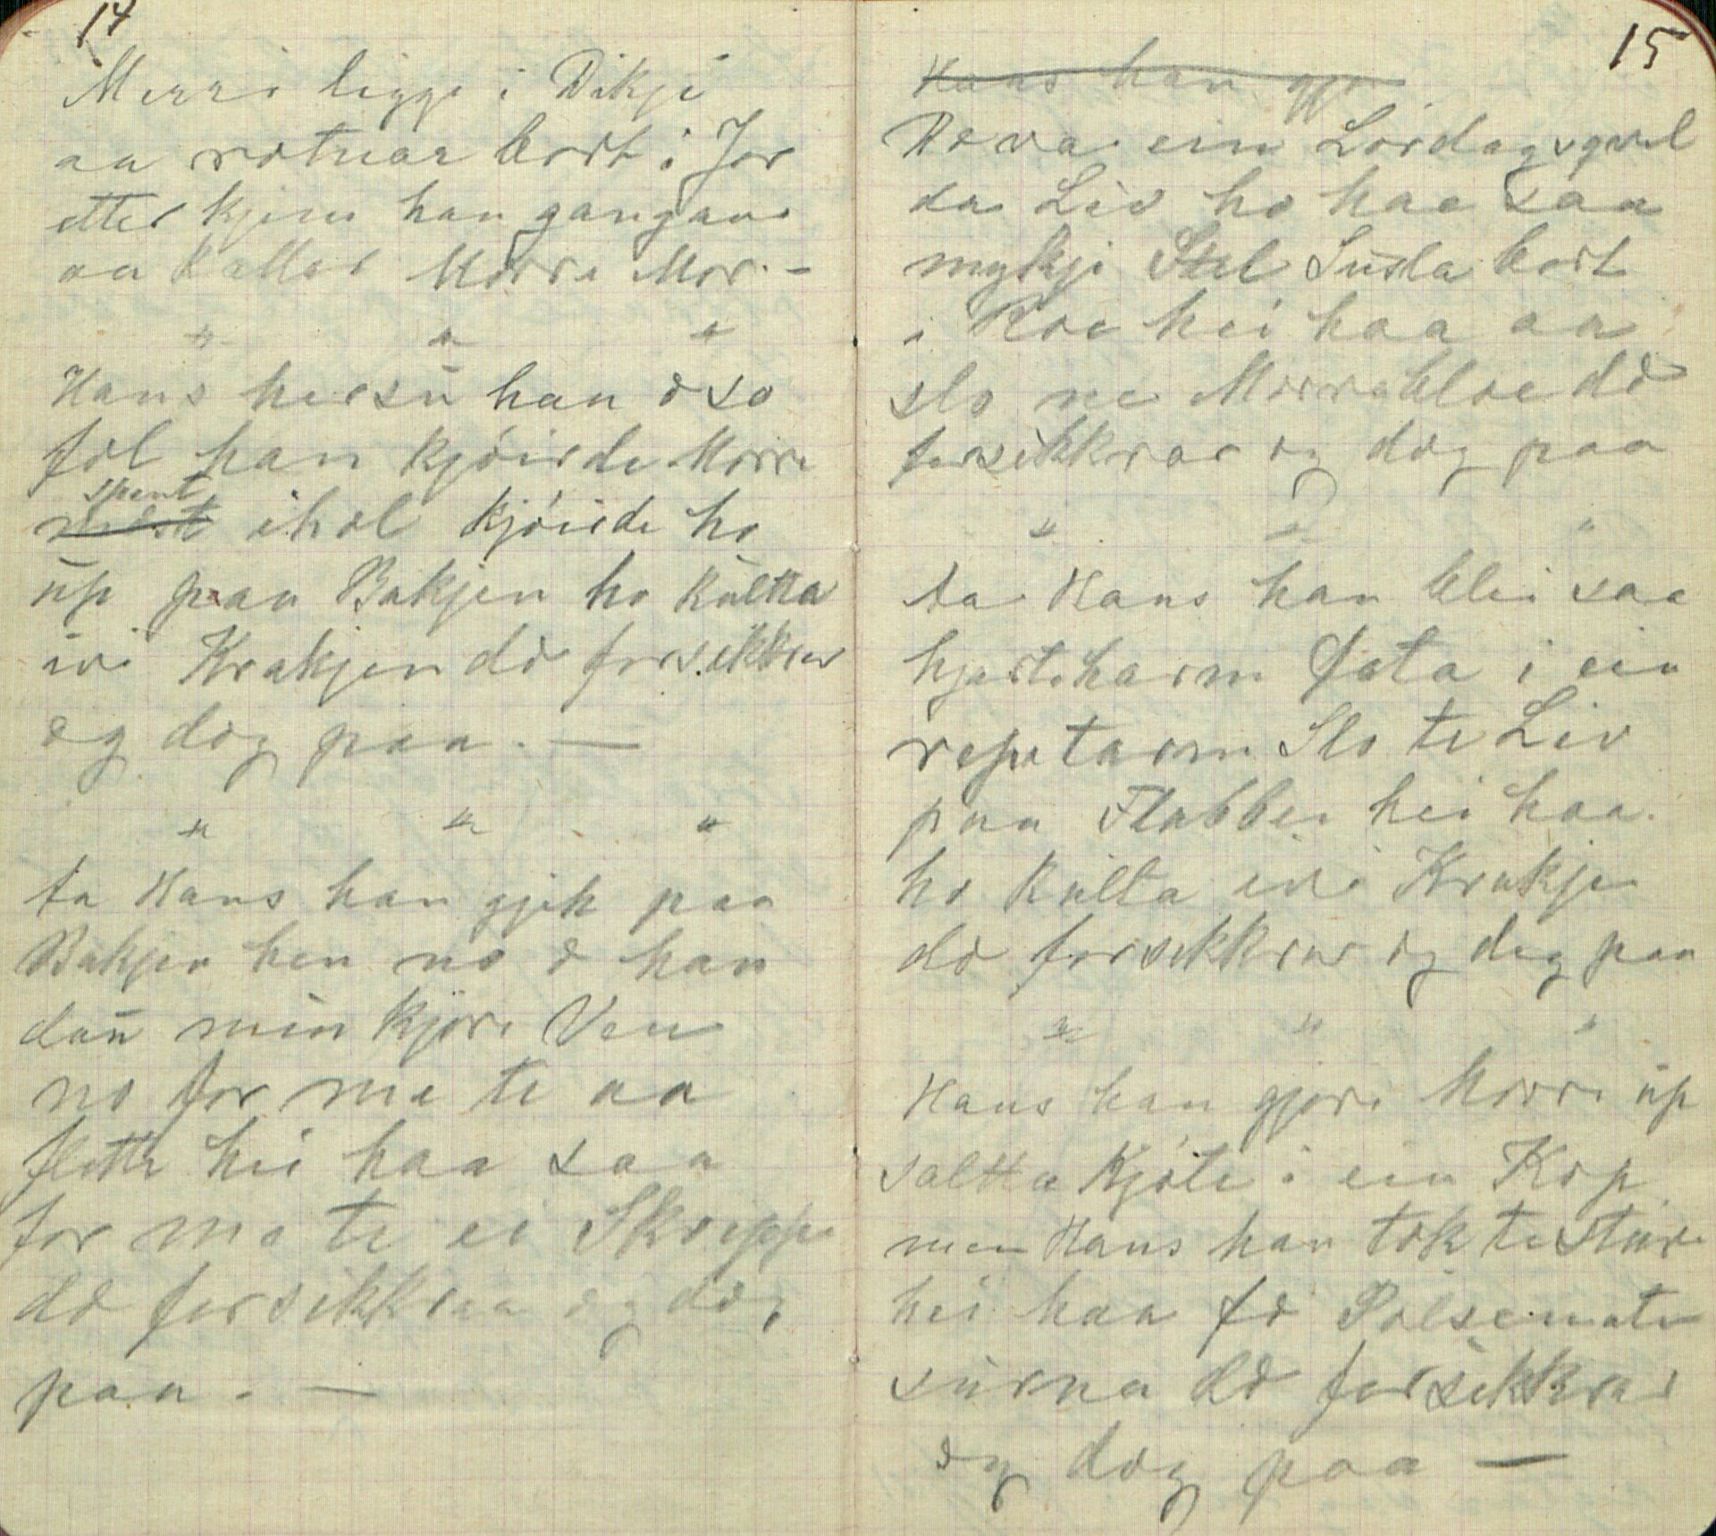 14
Merri ligge i Dikji
aa rotnar bort i Jor
etter kjem han gangan
aa kallar Morre Mor. -
" " "
Hans hersü han o so
fol han kjöirde Morri
spent
ihol kjöirde ho
üp paa Bakjen ho külta
ivi Krakjen do forsikkrar
og dog paa. —
" " "
ta Hans han gjek paa
Bakjen hen no o han
daü min kjøre Ven
no for me te aa
flette hei haa saa
for me te ei Skreppe
do forsikkraa og dog
paa. —
15
Hans han gjo
Do va ein Lördagsqvel
da Liv ho haa saa
mykji Stel Susla bort
i Kroe hei haa aa
slo ne Morrabloe do
forsikkrar og dog paa
" " "
ta Hans han blei saa
hjerteharm fata i ein
repetarm Slo te Liv
paa Flabben hei haa.
ho külta ivi Krakje
do forsikkrar og dog paa
" " "
Hans han gjore Morri üp
salta kjöte i ein Kop
men Hans han tok te stüre
hei haa fo Pölsemate
sürna do forsikkrar
og dog paa —